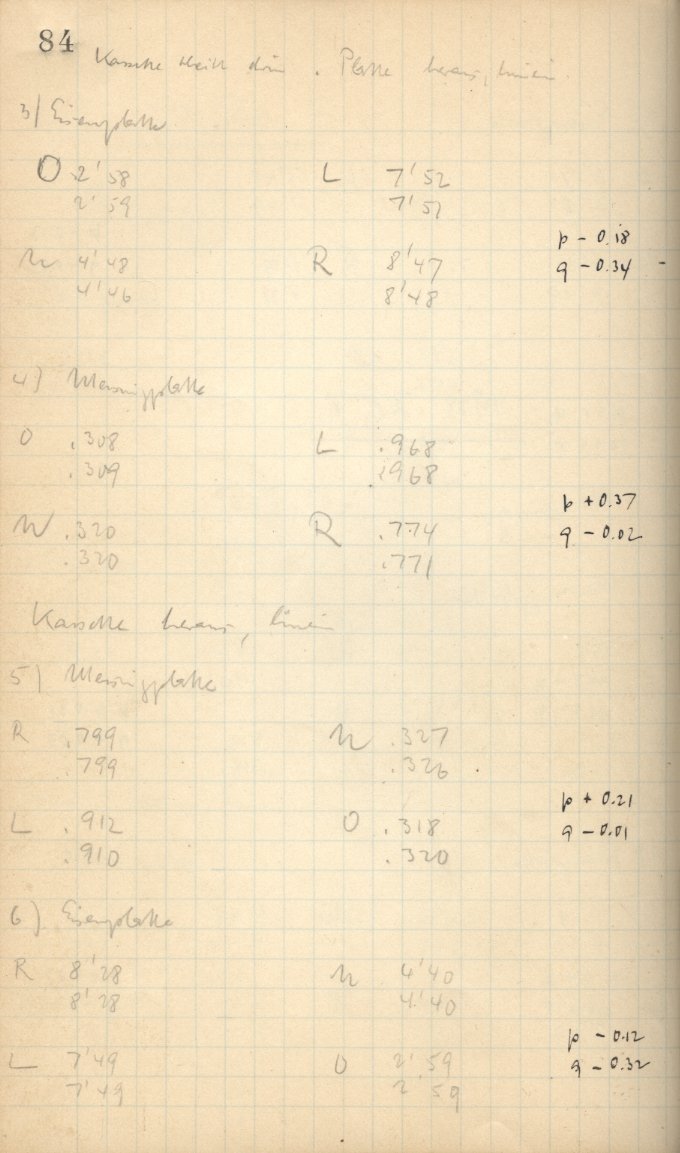 84
Kassette bleibt drin. Platte heraus, hinein.
3) Eisenplatte
O 2'58 L 7'52
2'59 7'51
p - 0.18
U 4'48 R 8'47 q - 0.34 -
4'46 8'48
4) Messingplatte
O .308 L .968
.309 .968
p + 0.37
U .320 R .774 q - 0.02
.320 .771
Kassette heraus, hinein
5) Messingplatte
R .799 U .327
799 .326
p + 0.21
L .912 O .318 q - 0.01
.910 .320
6) Eisenplatte
R 8'28 U 4'40
8'28 4'40
p - 0.12
L 7'49 O 2'59 q - 0.32
7'49 2 59